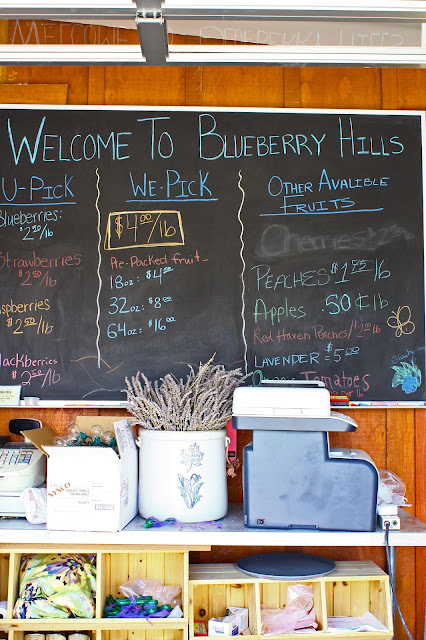 WELCOME TO BLUEBERRY HILLS
U-PICK
Blueberries:
$2.50/lb
Strawberries
$2.50/lb
aspberries
$2.50/lb
lackberries
$2.50/lb
WE-PICK
$4.00/lb
Pre-Packed fruit-
18oz: $4.00
32oz: $8.00
64oz: $16.00
OTHER AVALIBLE
FRUITS
Cherries
PEACHES $1.25/lb
Apples .50¢ lb
Red Haven Peaches/
LAVENDER = $5.00
Tomatoes
SYSCO